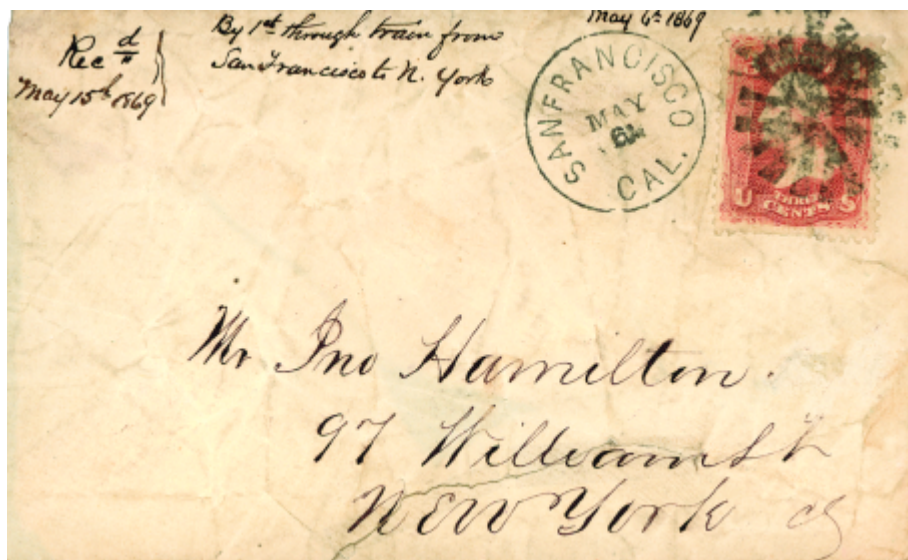 May 6th 1869
By 1st through train from
San Francisco to N. York
Recd
May 15th 1869
SAN FRANCISCO
MAY
6
CAL.
U THREE CENTS S
Mr Jno Hamilton.
97 William St
New York